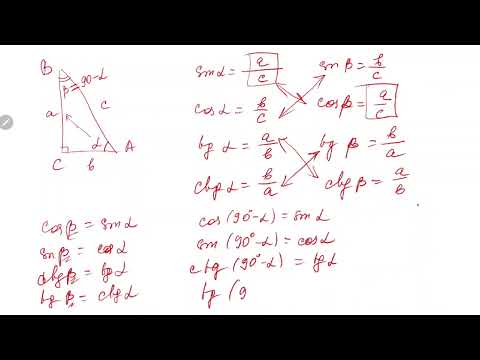 B
β = 90-α
a
c
α
C
b
A
sin α = a/c
sin β = b/c
cos α = b/c
cos β = a/c
tg α = a/b
tg β = b/a
ctg α = b/a
ctg β = a/b
cos β = sin α
sin β = cos α
ctg β = tg α
tg β = ctg α
cos (90°-α) = sin α
sin (90°-α) = cos α
ctg (90°-α) = tg α
tg (9